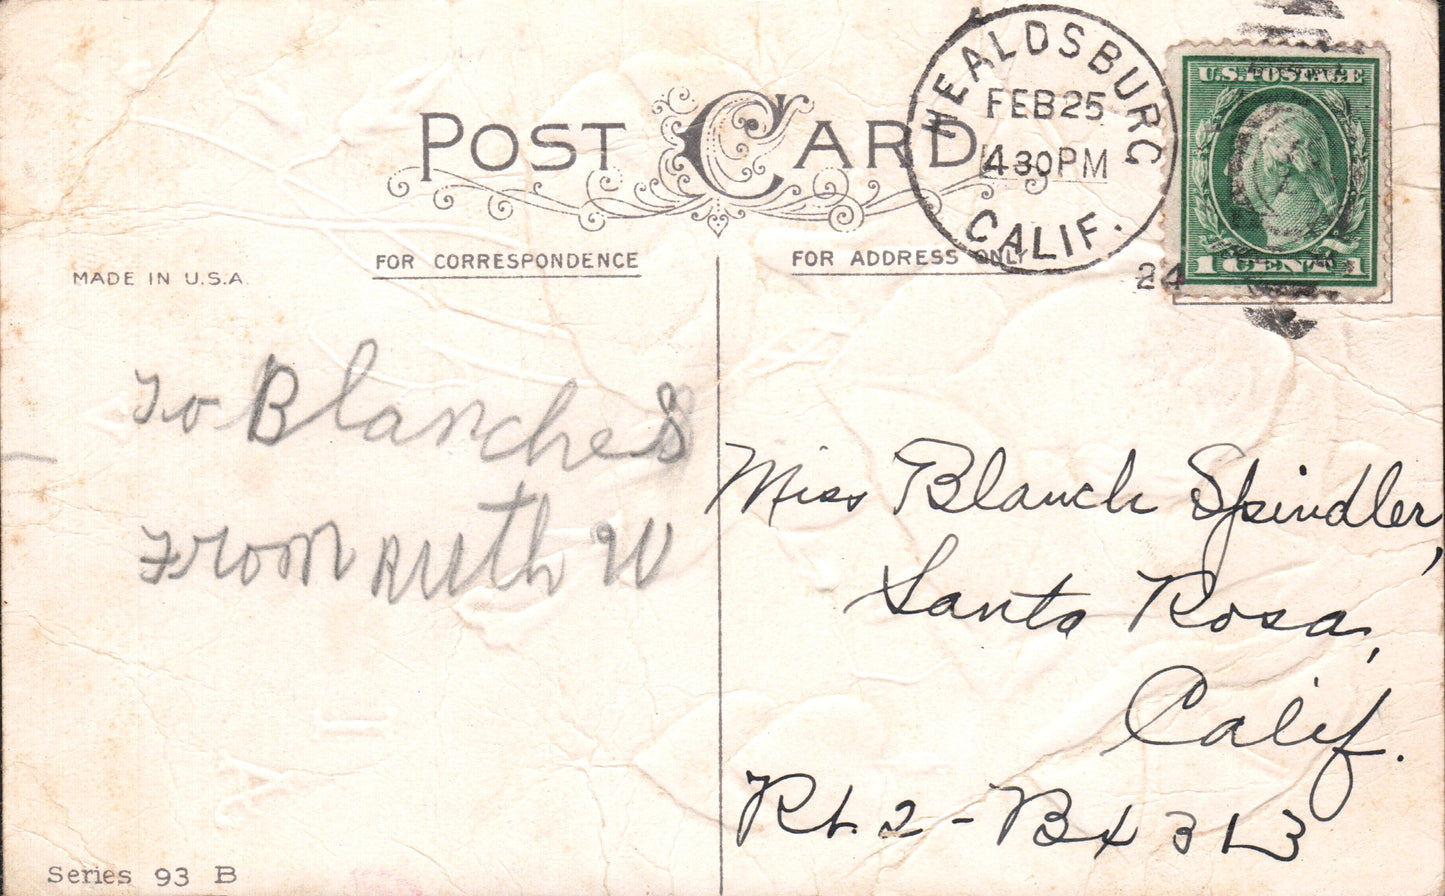 POST CARD
HEALDSBURG
FEB 25
4 30 PM
CALIF.
24
U.S. POSTAGE
1 CENT 1
FOR CORRESPONDENCE
FOR ADDRESS ONLY
MADE IN U.S.A.
To Blanche S
From Ruth W
Miss Blanch Spindler,
Santa Rosa,
Calif.
Rt. 2 - Bx 313
Series 93 B